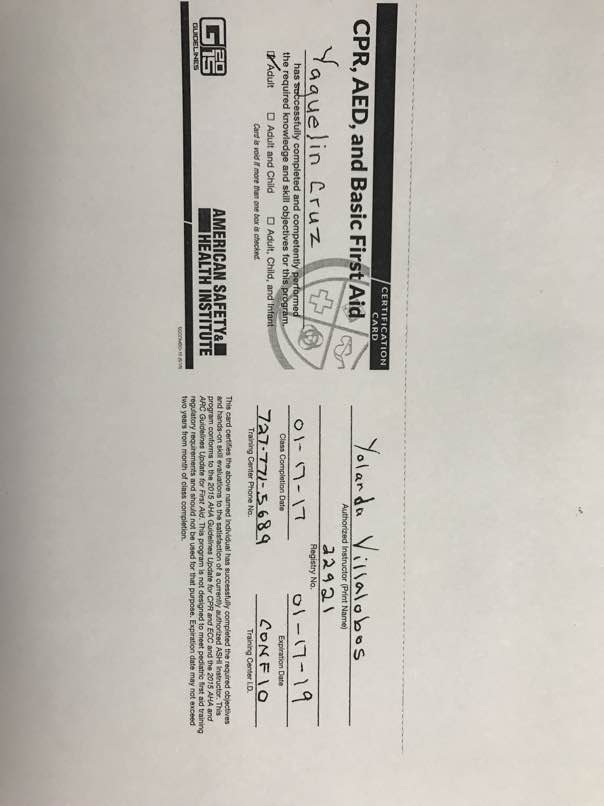 CERTIFICATION
CARD
CPR, AED, and Basic First Aid
Yaquelin Cruz
has successfully completed and competently performed
the required knowledge and skill objectives for this program.
Adult
Adult and Child
Adult, Child, and Infant
Card is void if more than one box is checked.
G2015
GUIDELINES
AMERICAN SAFETY&
HEALTH INSTITUTE
Yolanda Villalobos
Authorized Instructor (Print Name)
22921
Registry No.
01-17-17
01-17-19
Class Completion Date
Expiration Date
727-771-5689
CONF10
Training Center Phone No.
Training Center I.D.
This card certifies the above named individual has successfully completed the required objectives
and hands-on skill evaluations to the satisfaction of a currently authorized ASHI Instructor. This
program conforms to the 2015 AHA Guidelines Update for CPR and ECC and the 2015 AHA and
ARC Guidelines Update for First Aid. This program is not designed to meet pediatric first aid training
regulatory requirements and should not be used for that purpose. Expiration date may not exceed
two years from month of class completion.